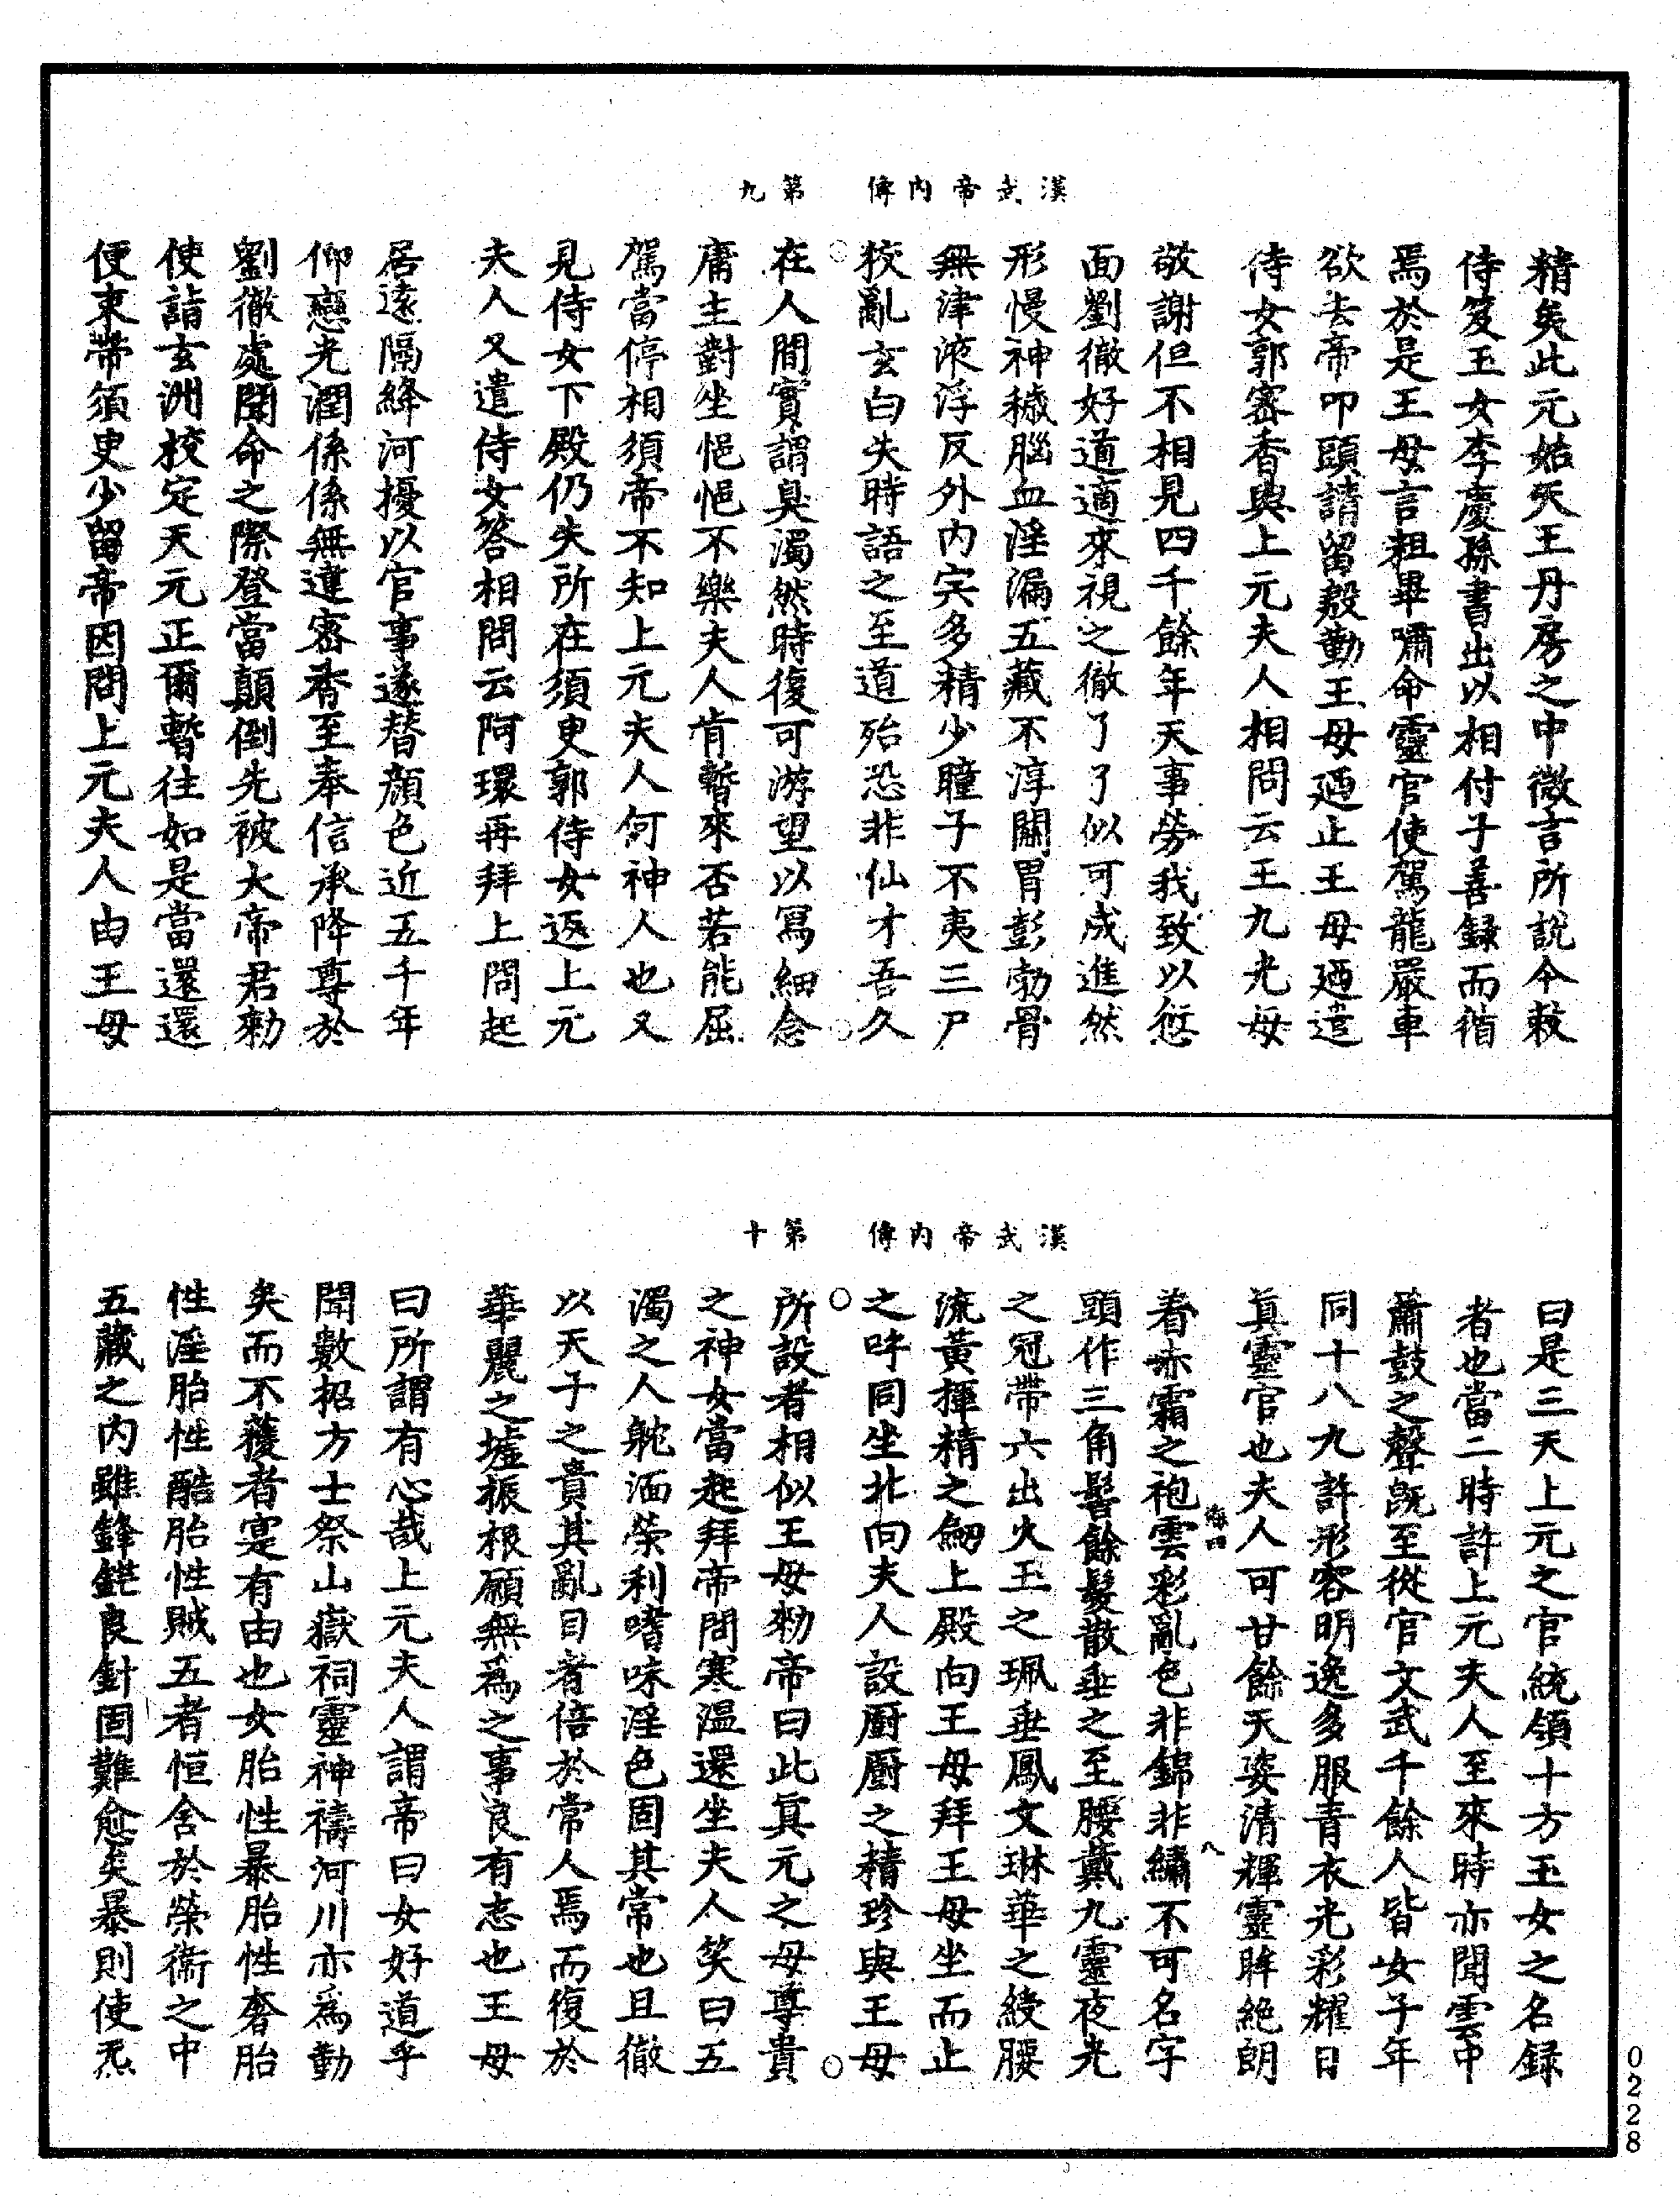 漢武帝內傳　第九
精矣此元始天王丹房之中微言所說今敕
侍笈玉女李慶孫書出以相付子善録而循
焉於是王母言粗畢嘯命靈官使駕龍嚴車
欲去帝叩頭請留殷勤王母廼止王母廼遣
侍女郭密香與上元夫人相問云王九光母
敬謝但不相見四千餘年天事勞我致以愆
面劉徹好道適來視之徹了了似可成進然
形慢神穢腦血淫漏五藏不淳關胃彭勃骨
無津液浮反外內宍多精少瞳子不夷三尸
狡亂玄白失時語之至道殆恐非仙才吾久
在人間實謂臭濁然時復可游望以寫細念
庸主對坐悒悒不樂夫人肯暫來否若能屈
駕當停相須帝不知上元夫人何神人也又
見侍女下殿仍失所在須臾郭侍女返上元
夫人又遣侍女答相問云阿環再拜上問起
居遠隔絳河擾以官事遂替顏色近五千年
仰戀光潤係係無違密香至奉信承降尊於
劉徹處聞命之際登當顛倒先被大帝君勑
使詣玄洲校定天元正爾暫往如是當還還
便束帶須臾少留帝因問上元夫人由王母
漢武帝內傳　第十
曰是三天上元之官統領十方玉女之名録
者也當二時許上元夫人至來時亦聞雲中
蕭鼓之聲旣至從官文武千餘人皆女子年
同十八九許形容明逸多服青衣光彩耀日
眞靈官也夫人可廿餘天姿清輝靈眸絶朗
海四　八
着赤霜之袍雲彩亂色非錦非繡不可名字
頭作三角髻餘髮散垂之至腰戴九靈夜光
之冠帶六出火玉之珮垂鳳文琳華之綬腰
流黃揮精之劒上殿向王母拜王母坐而止
之呼同坐北向夫人設厨厨之精珍與王母
所設者相似王母勑帝曰此眞元之母尊貴
之神女當起拜帝問寒温還坐夫人笑曰五
濁之人躭湎榮利嗜味淫色固其常也且徹
以天子之貴其亂目者倍於常人焉而復於
華麗之墟振根願無爲之事良有志也王母
曰所謂有心哉上元夫人謂帝曰女好道乎
聞數招方士祭山嶽祠靈神禱河川亦爲勤
矣而不獲者寔有由也女胎性暴胎性奢胎
性淫胎性酷胎性賊五者恒舍於榮衞之中
五藏之內雖鋒鋩良針固難愈矣暴則使炁
0228